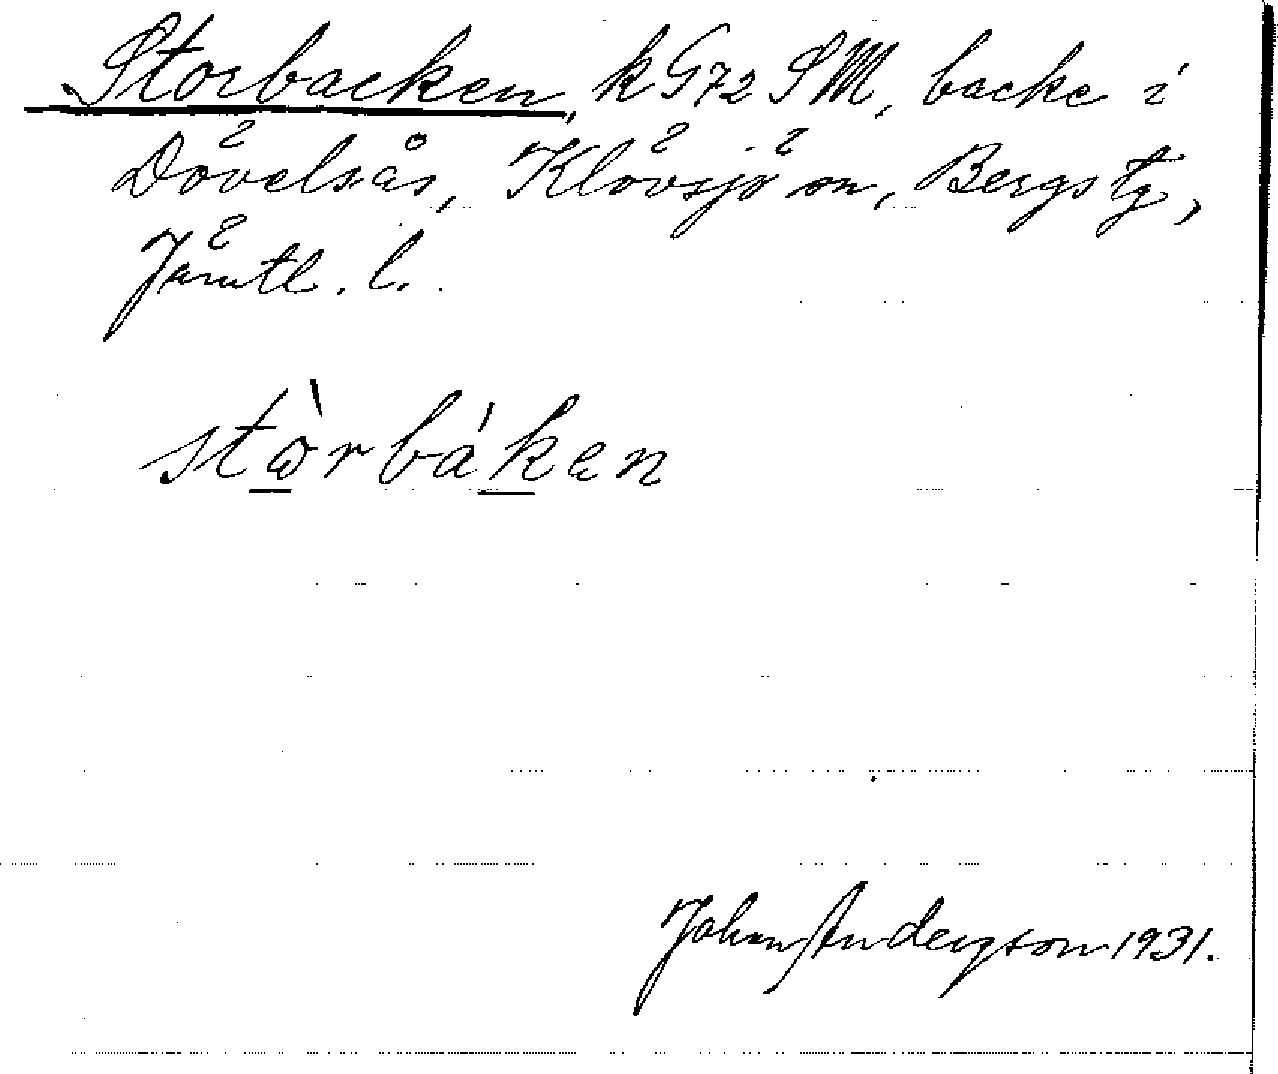 Storbacken, k G72 SM, backe i
Dövelsås, Klövsjö sn, Bergs tg,
Jämtl. l.
stòrbáken
Johan Andersson 1931.